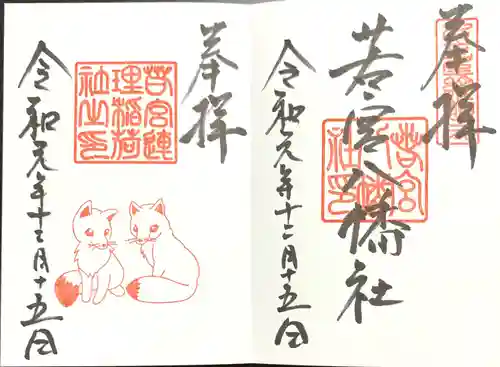 奉拝
若宮八幡社
若宮
八幡
社印
令和元年十二月十五日
奉拝
若宮連
理稲荷
社之印
令和元年十二月十五日